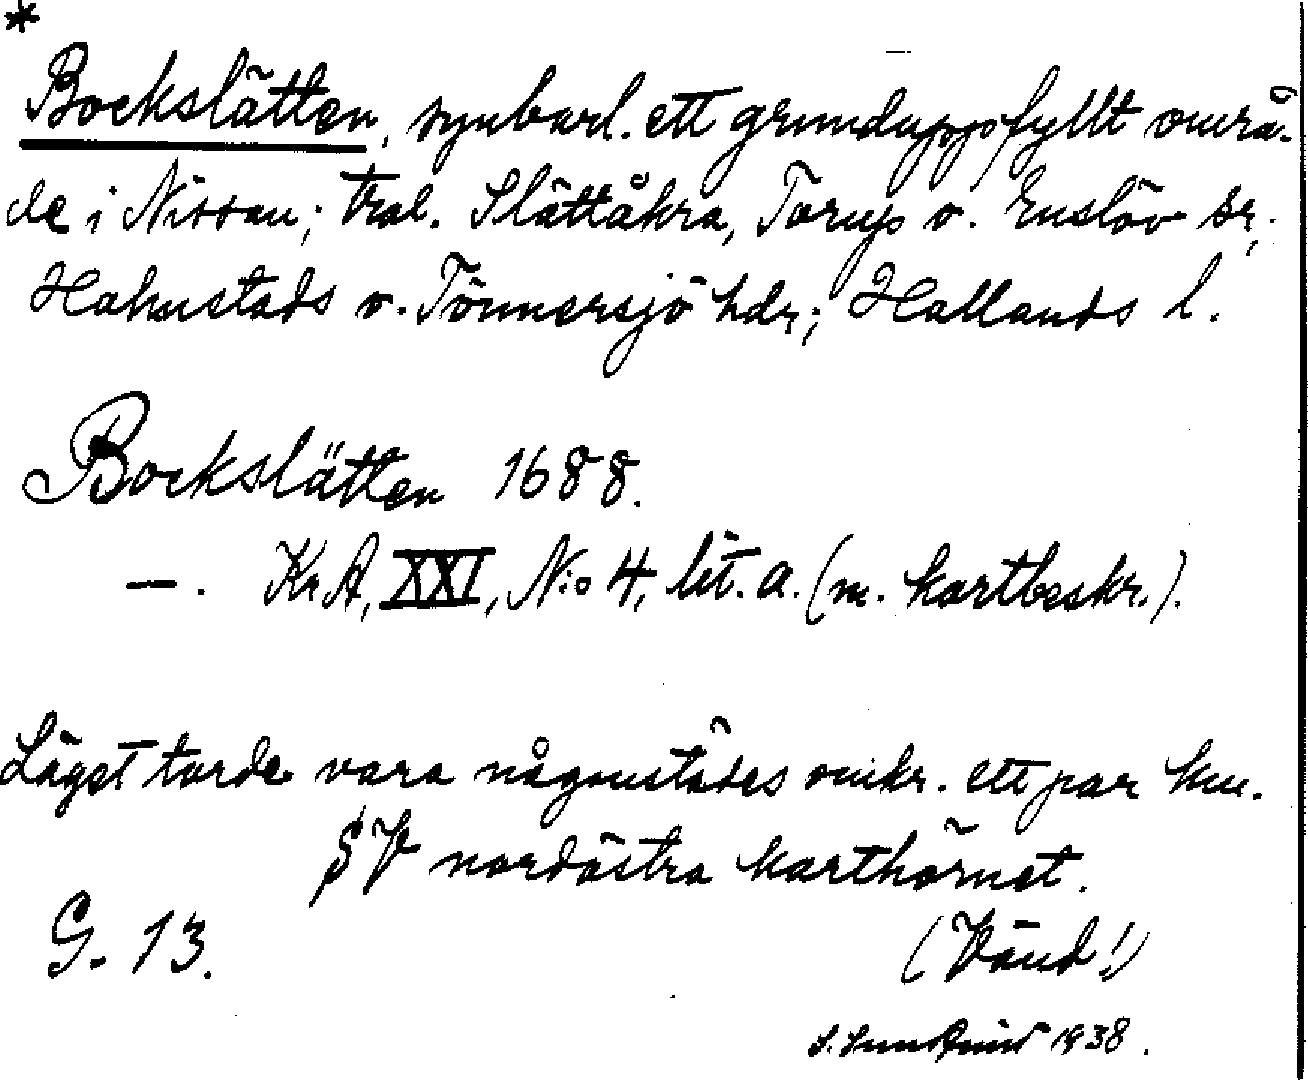 *
Bockslätten, synbarl. ett grunduppfyllt områ-
de i Nissan; trol. Slättåkra, Torup o. Enslöv sr,
Halmstads o. Tönnersjö hdr; Hallands l.
Bockslätten 1688.
—. KrA, XXI, N:o 4, lit. a. (m. kartbeskr.).
Läget torde vara någonstädes omkr. ett par km.
SV nordöstra karthörnet.
G. 13.
(Vänd!)
S. 1938.